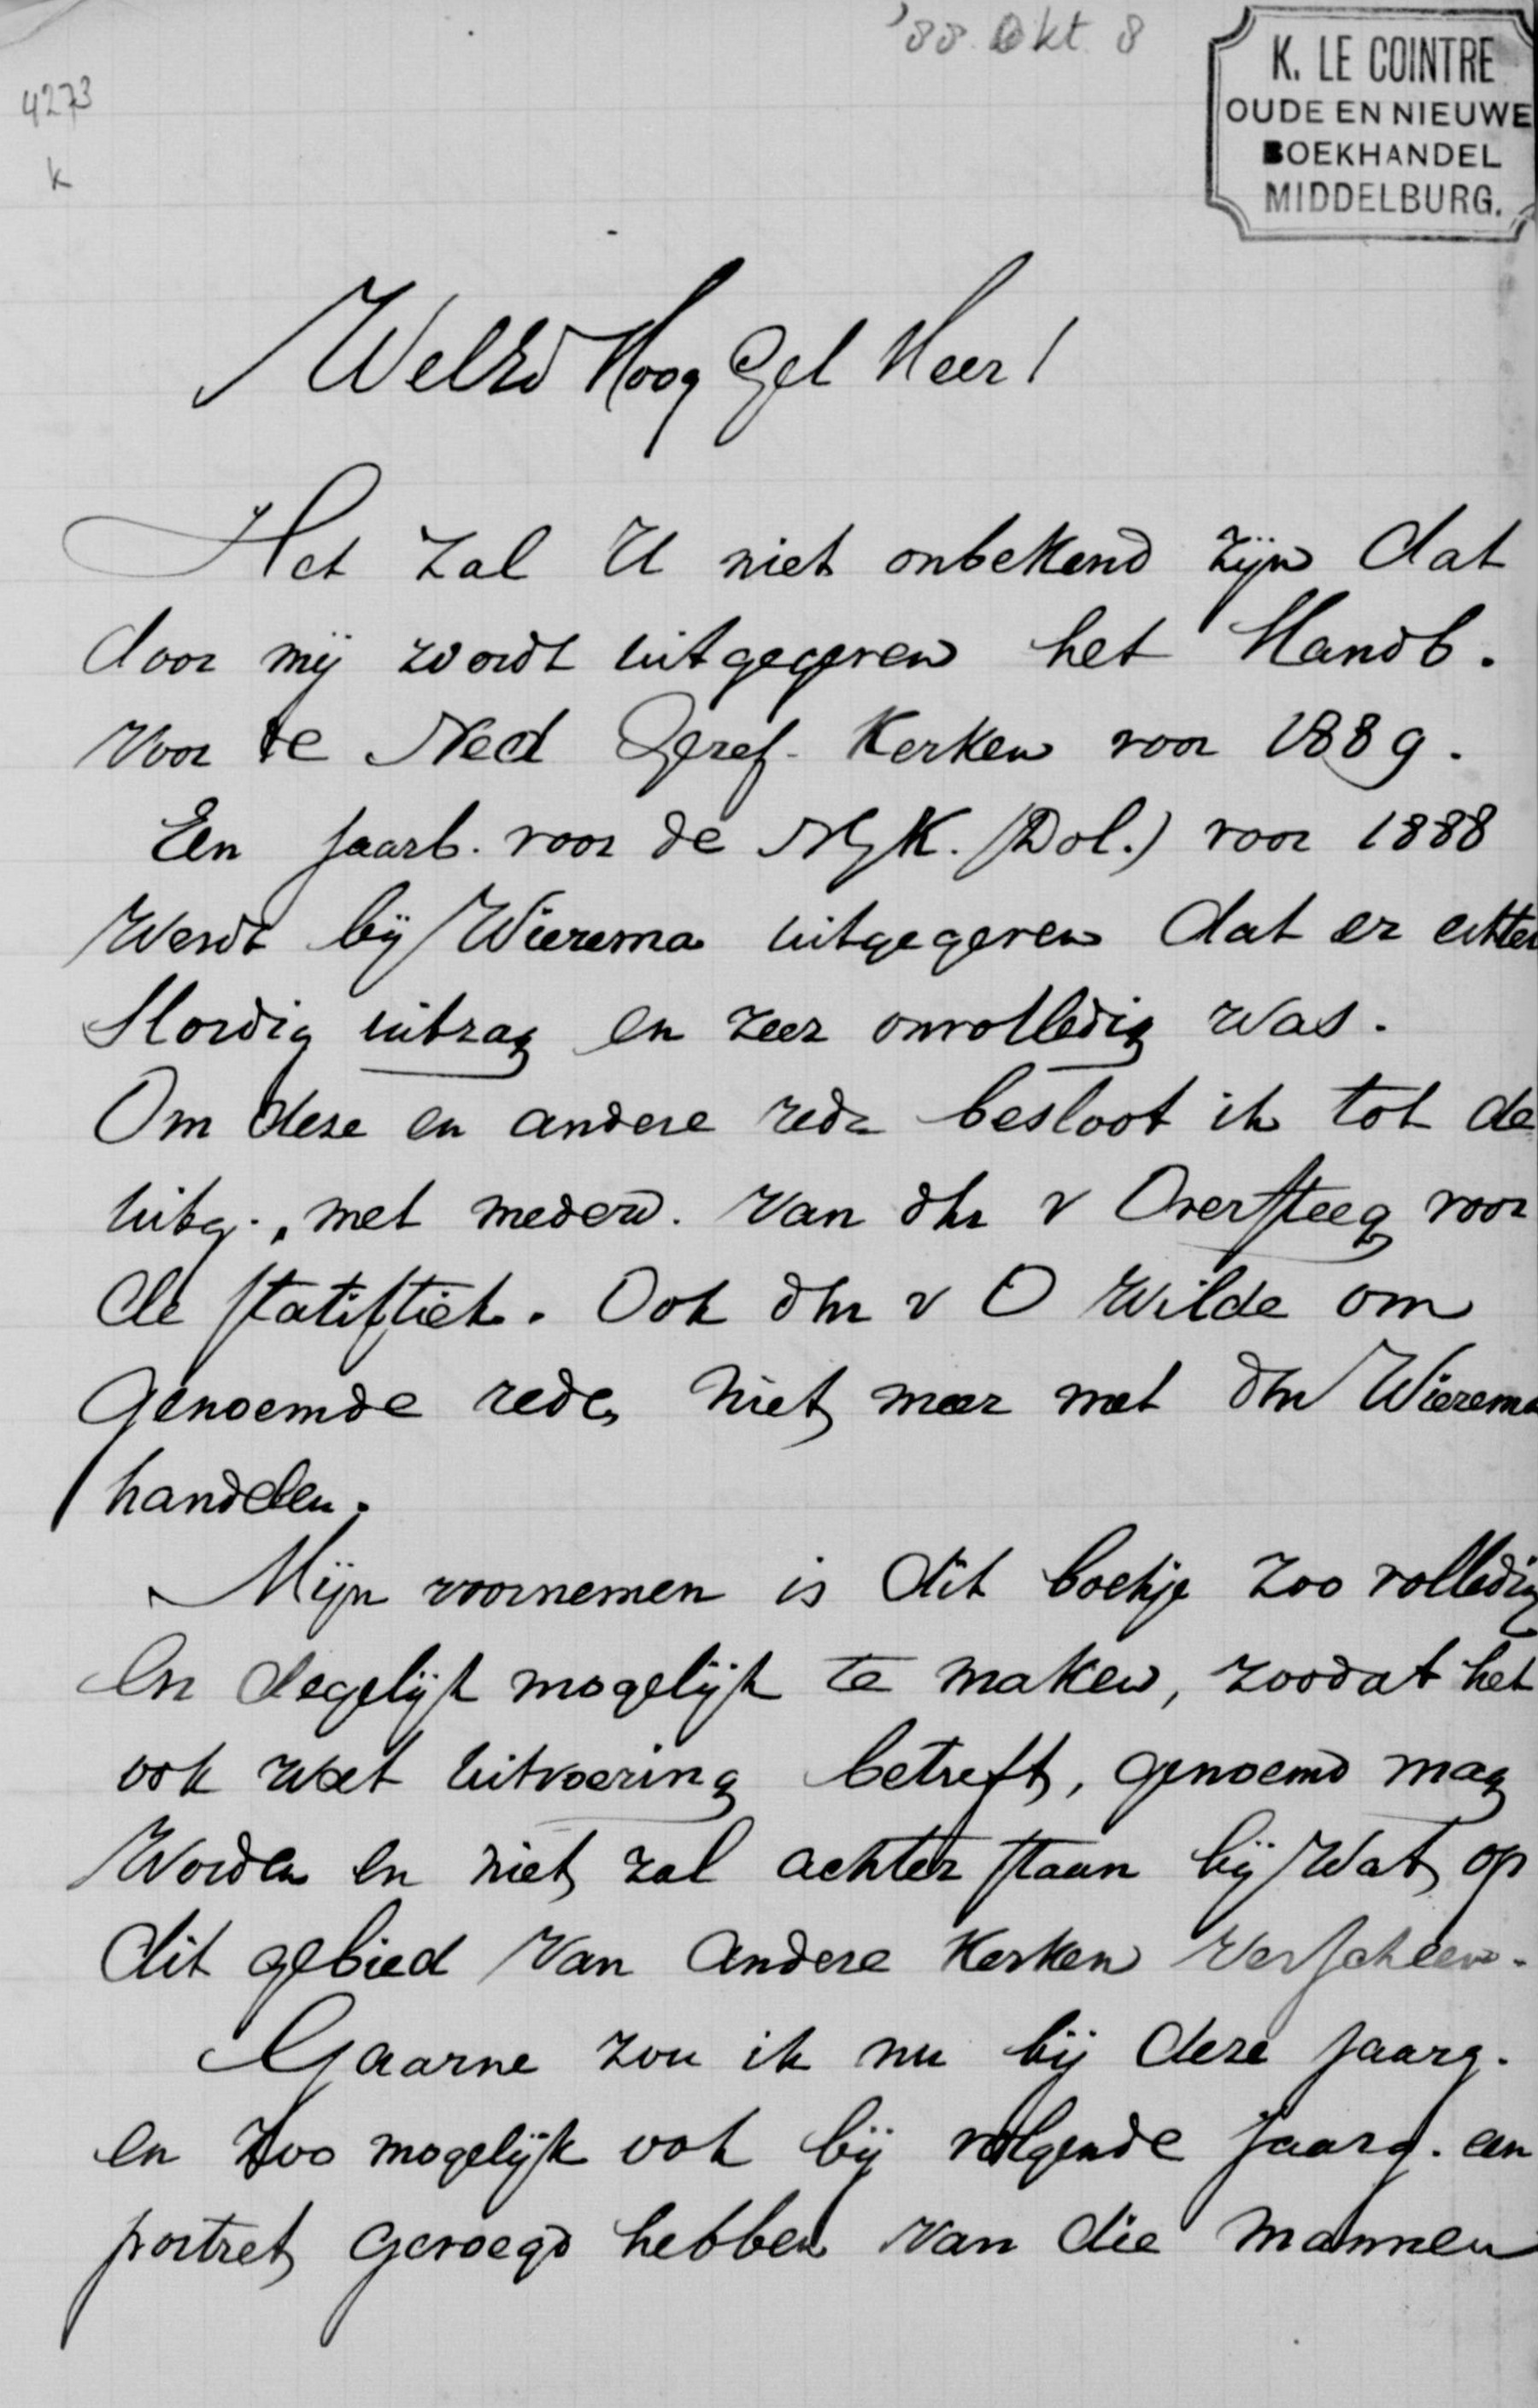 '88 Okt 8
4273
k
K. LE COINTRE
OUDE EN NIEUWE
BOEKHANDEL
MIDDELBURG.
WelEd Hoog Gel Heer!
Het zal U niet onbekend zijn dat
door mij wordt uitgegeven het Handb.
voor de Ned Geref. Kerken voor 1889.
Een Jaarb. voor de NGK. (Dol.) voor 1888
werdt bij Wierema uitgegeven dat er echter
slordig uitzag en zeer onvolledig was.
Om deze en andere rede besloot ik tot de
uitg., met medew. van dhr v Oversteeg voor
de statistiek. Ook dhr v O wilde om
genoemde rede, niet meer met dhr Wierema
handelen.
Mijn voornemen is dit boekje zoo volledig
en degelijk mogelijk te maken, zoodat het
ook wat uitvoering betreft, genoemd mag
worden en niet zal achterstaan bij wat op
dit gebied van andere Kerken verscheen.
Gaarne zou ik nu bij deze jaarg.
en zoo mogelijk ook bij volgende jaarg. een
portret gevoegd hebben van die mannen